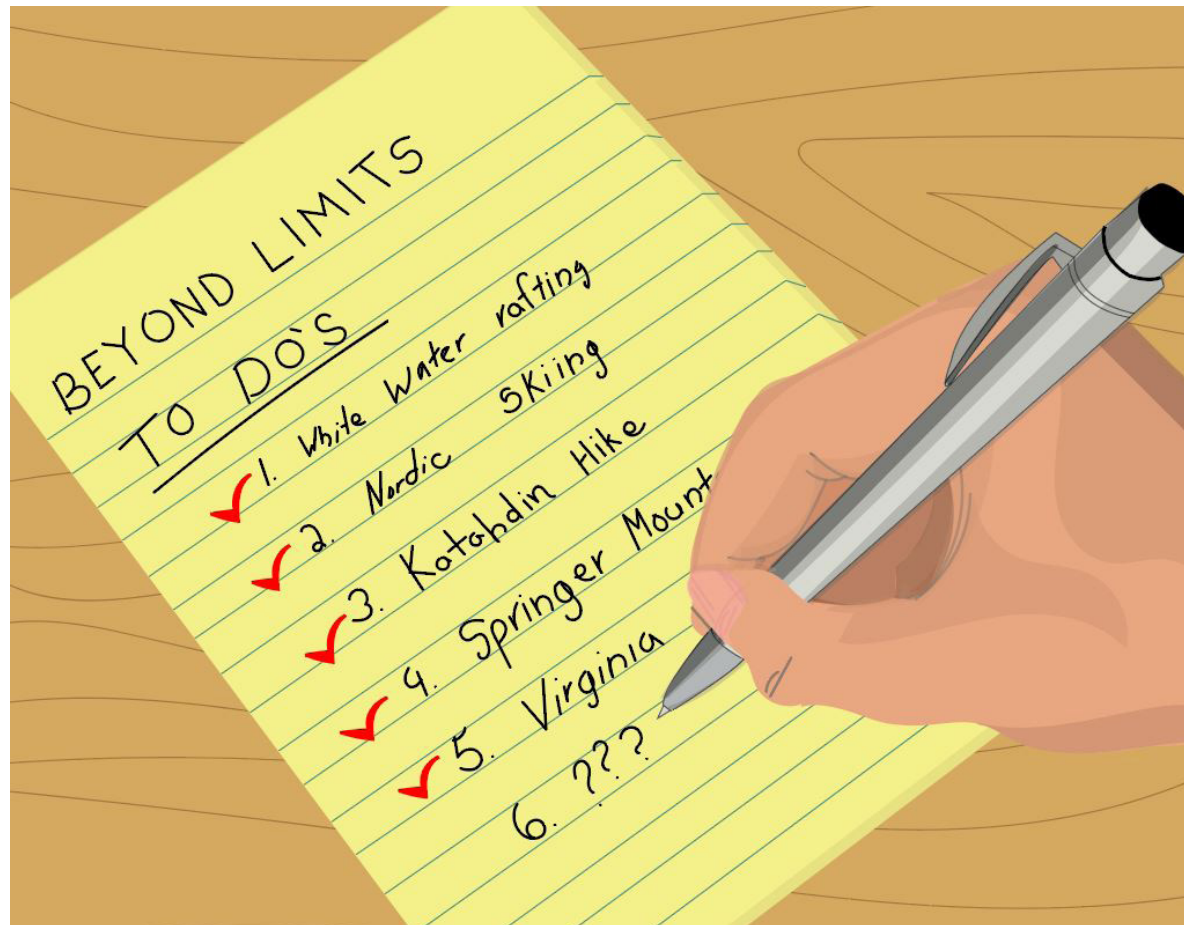 BEYOND LIMITS
TO DO`S
1. White Water rafting
2. Nordic skiing
3. Katahdin Hike
4. Springer
5. Virginia
6. ???